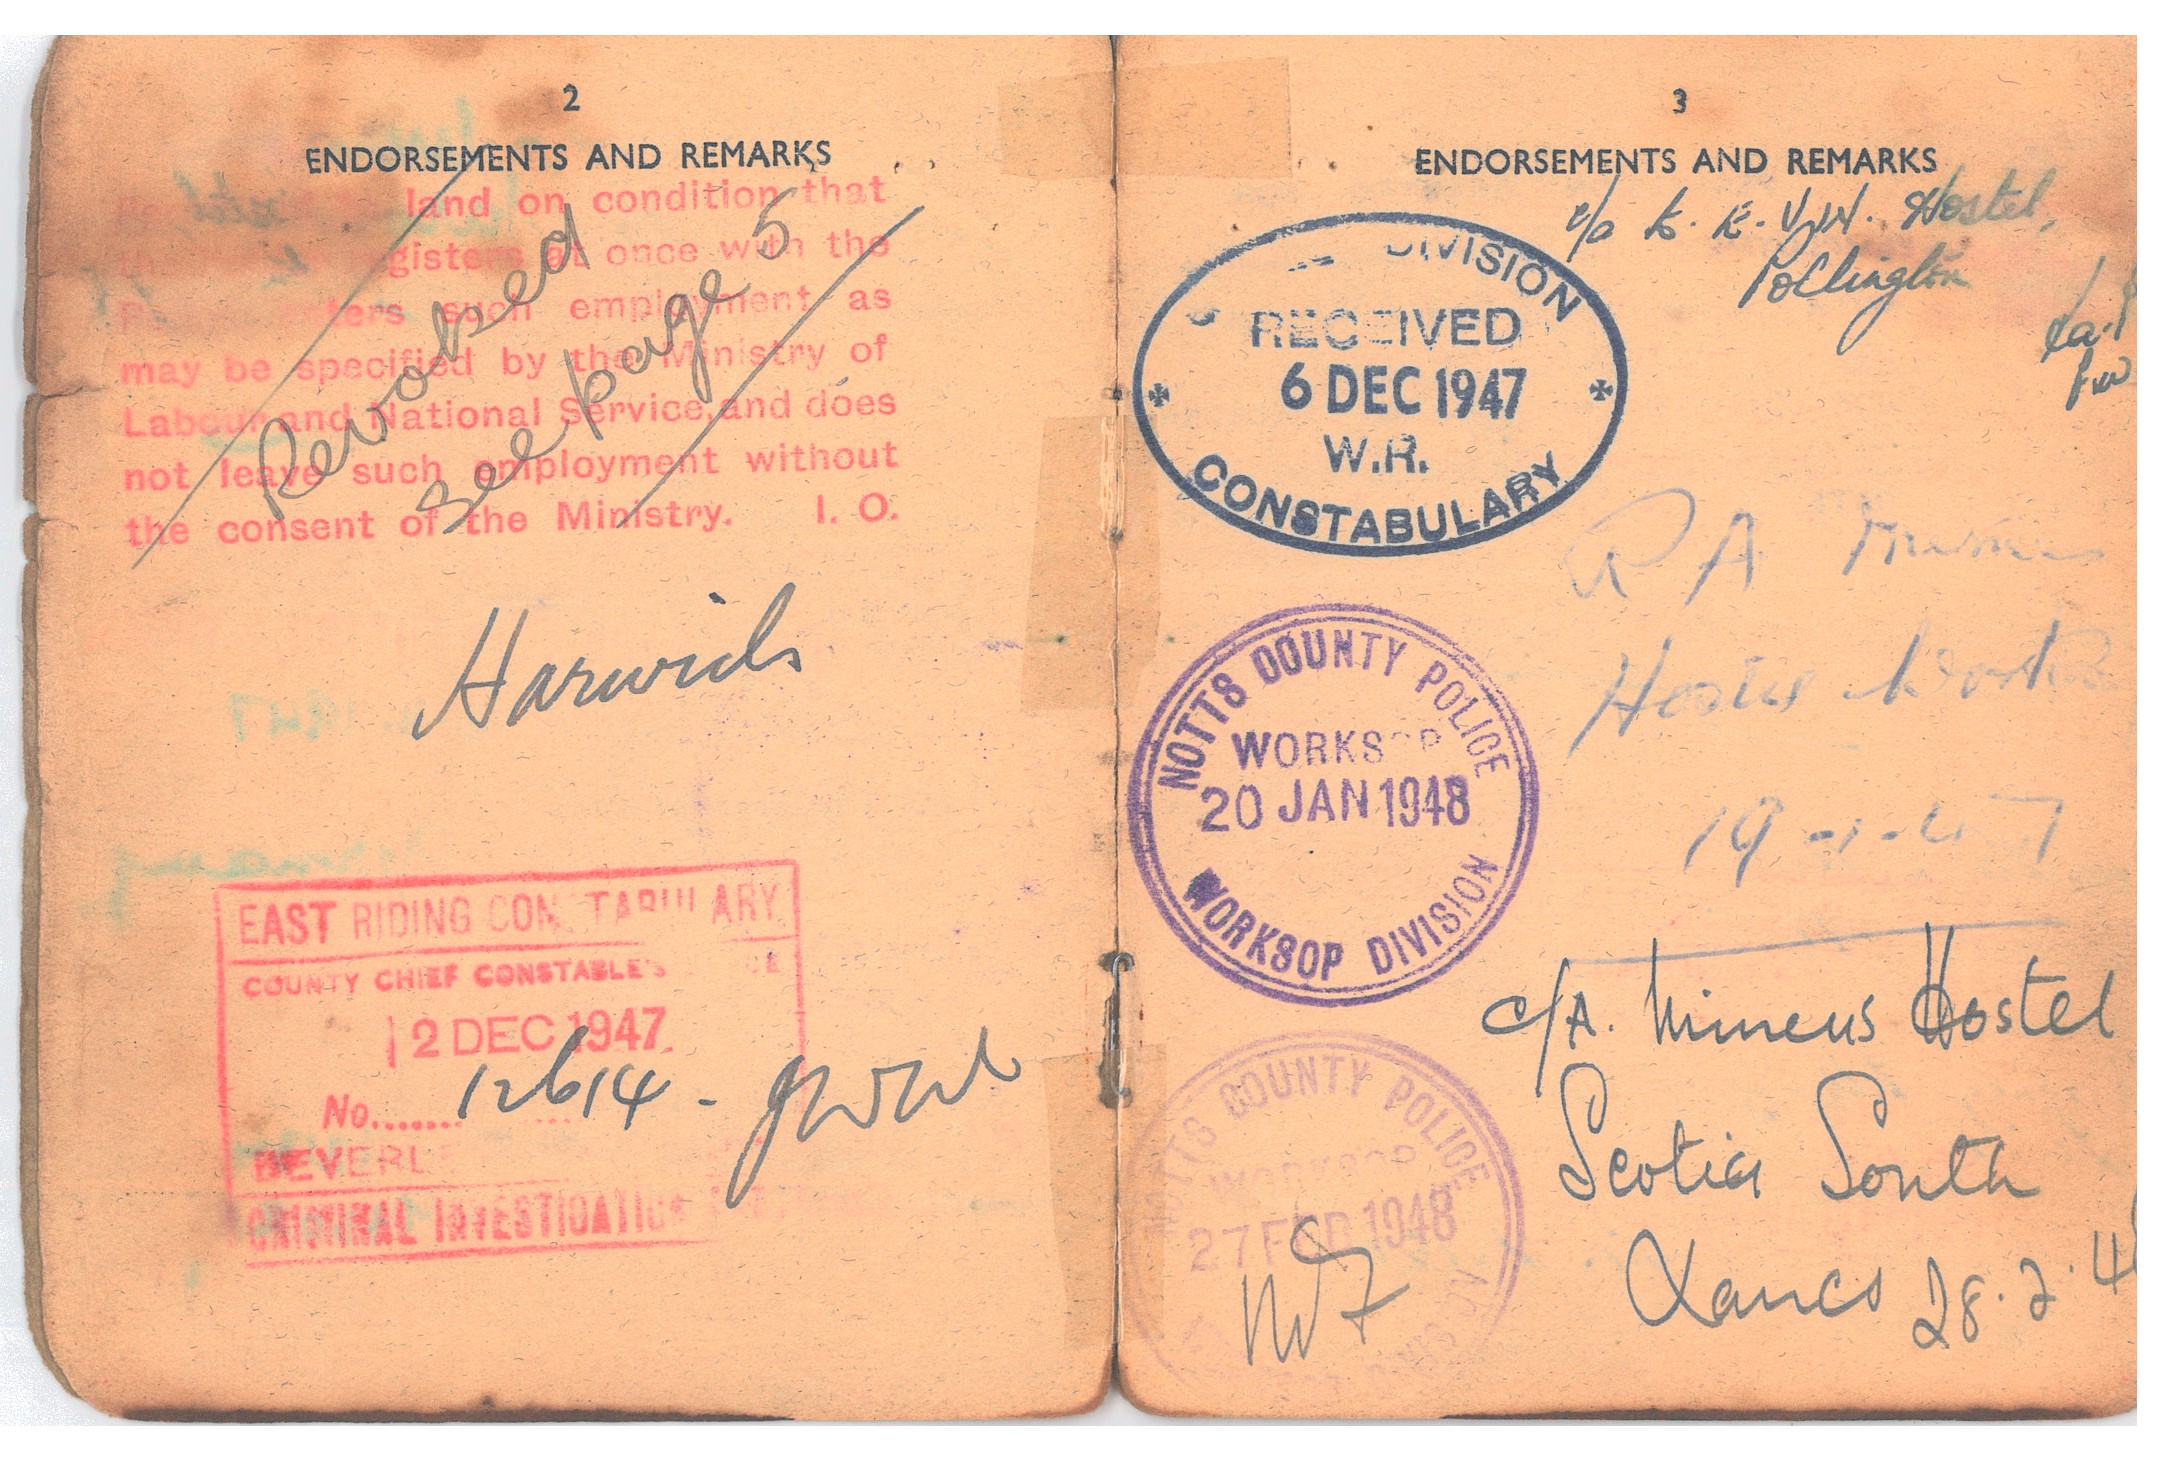 2
ENDORSEMENTS AND REMARKS
land on condition that
registers at once with the
enters such employment as
may be specified by the Ministry of
Labour and National Service, and does
not leave such employment without
the consent of the Ministry. I. O.
Revoked
see page 5
Harwich
EAST RIDING CONSTABULARY
COUNTY CHIEF CONSTABLE'S
12 DEC 1947
No....... 12614 -
BEVERL
CRIMINAL INVESTIGATION
3
ENDORSEMENTS AND REMARKS
c/o E. V. W. Hostel,
Pollington
DIVISION
RECEIVED
6 DEC 1947
W.R.
CONSTABULARY
Hostel
NOTTS COUNTY POLICE
WORKSOP
20 JAN 1948
WORKSOP DIVISION
c/A. Miners Hostel
Scotia South
Lancs 28.2.4
NOTTS COUNTY POLICE
WORKSOP
27 FEB 1948